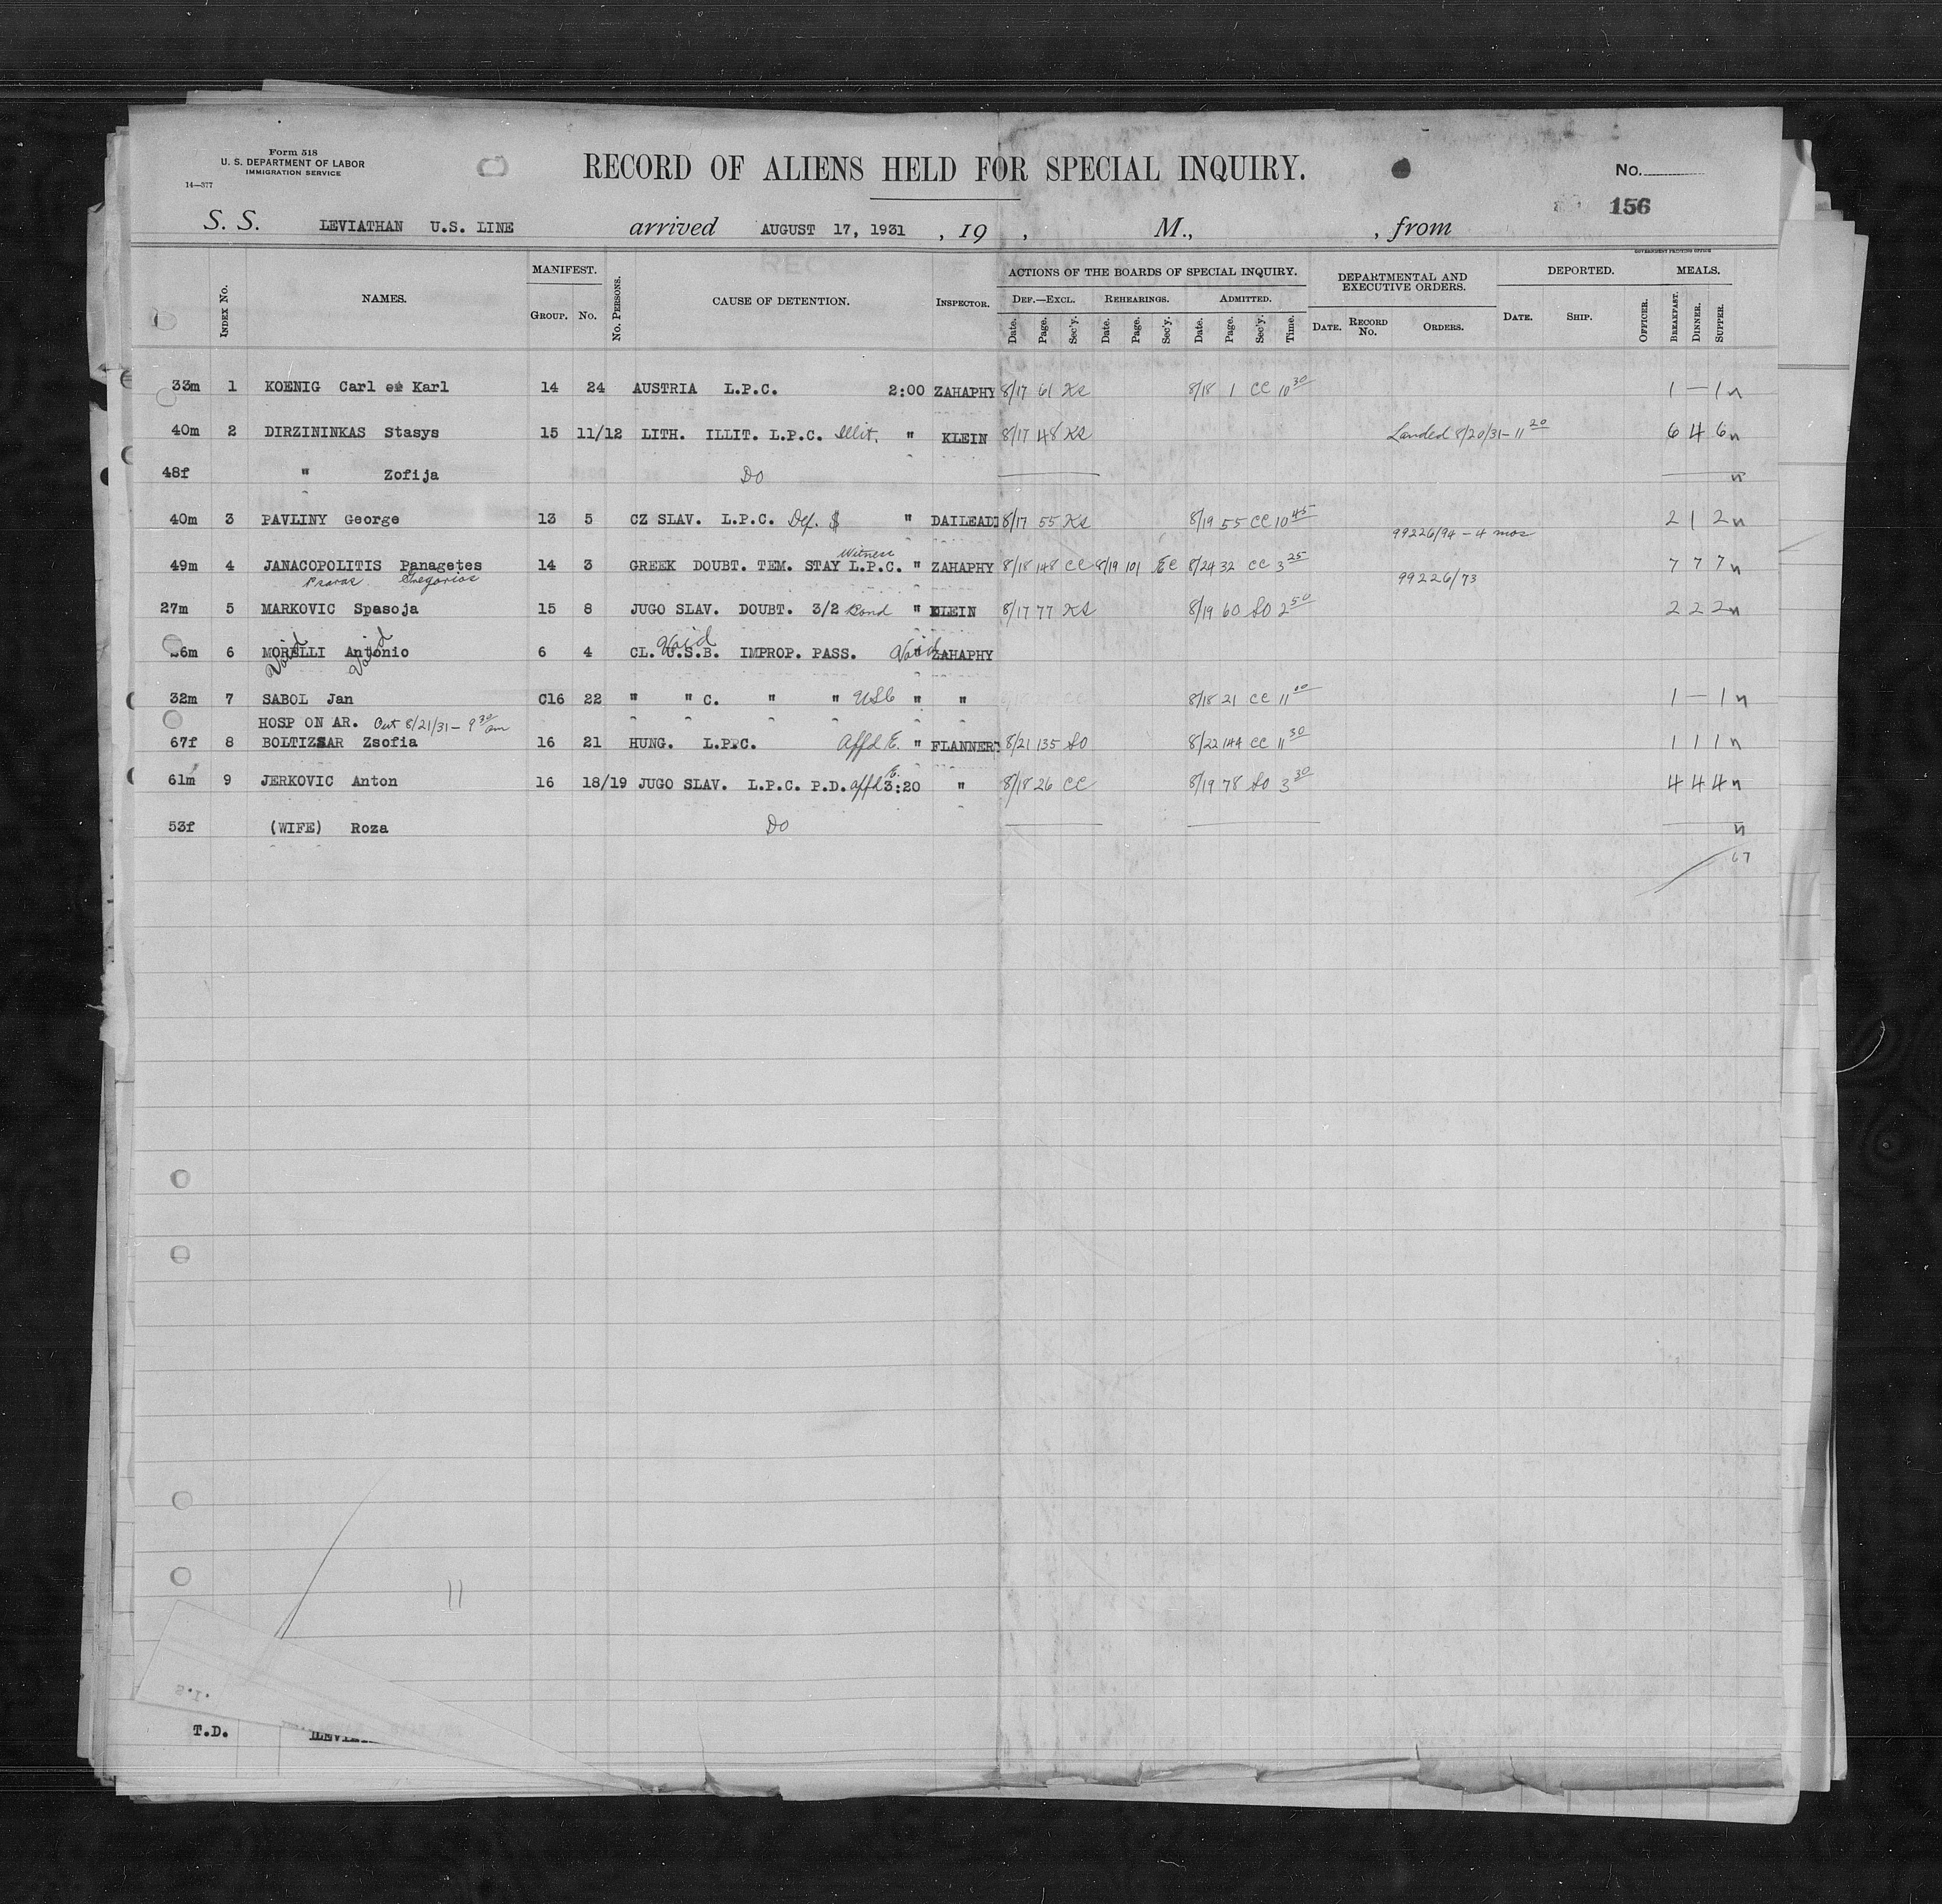 Form 518
U. S. DEPARTMENT OF LABOR
IMMIGRATION SERVICE
14—377
RECORD OF ALIENS HELD FOR SPECIAL INQUIRY.
No.
156
S. S. LEVIATHAN U.S. LINE arrived AUGUST 17, 1931 , 19 , M., , from
GOVERNMENT PRINTING OFFICE
INDEX NO. NAMES. MANIFEST. GROUP. NO. NO. PERSONS. CAUSE OF DETENTION. INSPECTOR. ACTIONS OF THE BOARDS OF SPECIAL INQUIRY. DEPARTMENTAL AND EXECUTIVE ORDERS. DEPORTED. MEALS.
DEF.—EXCL. REHEARINGS. ADMITTED.
Date. Page. Sec'y. Date. Page. Sec'y. Date. Page. Sec'y. Time. DATE. RECORD NO. ORDERS. DATE. SHIP. OFFICER. BREAKFAST. DINNER. SUPPER.
33m 1 KOENIG Carl Karl 14 24 AUSTRIA L.P.C. 2:00 ZAHAPHY 8/17 61 KS 8/18 1 CC 10 30 1 — 1 n
40m 2 DIRZININKAS Stasys 15 11/12 LITH. ILLIT. L.P.C. Illit. " KLEIN 8/17 48 KS Landed 8/20/31 - 11 20 6 4 6 n
48f " Zofija Do n
40m 3 PAVLINY George 13 5 CZ SLAV. L.P.C. Def. $ " DAILEADI 8/17 55 KS 8/19 55 CC 10 45 99226/94 - 4 mos 2 1 2 n
Witness
49m 4 JANACOPOLITIS Panagetes 14 3 GREEK DOUBT. TEM. STAY L.P.C. " ZAHAPHY 8/18 148 CC 8/19 101 EC 8/24 32 CC 3 25 99226/73 7 7 7 n
Gregorios
27m 5 MARKOVIC Spasoja 15 8 JUGO SLAV. DOUBT. 3/2 Bond " KLEIN 8/17 77 KS 8/19 60 SO 2 50 2 2 2 n
Void Void Void Void
26m 6 MORELLI Antonio 6 4 CL. U.S.B. IMPROP. PASS. " ZAHAPHY
32m 7 SABOL Jan C16 22 " " C. " " USC " " 8/18 21 CC 11 00 1 — 1 n
HOSP ON AR. Out 8/21/31 - 9 30 am
67f 8 BOLTIZSAR Zsofia 16 21 HUNG. L.P.C. Affd E. " FLANNERY 8/21 135 SO 8/22 144 CC 11 30 1 1 1 n
61m 9 JERKOVIC Anton 16 18/19 JUGO SLAV. L.P.C. P.D. affd E. 3:20 " 8/18 26 CC 8/19 78 SO 3 30 4 4 4 n
53f (WIFE) Roza Do n
67
11
S.I.
T.D.